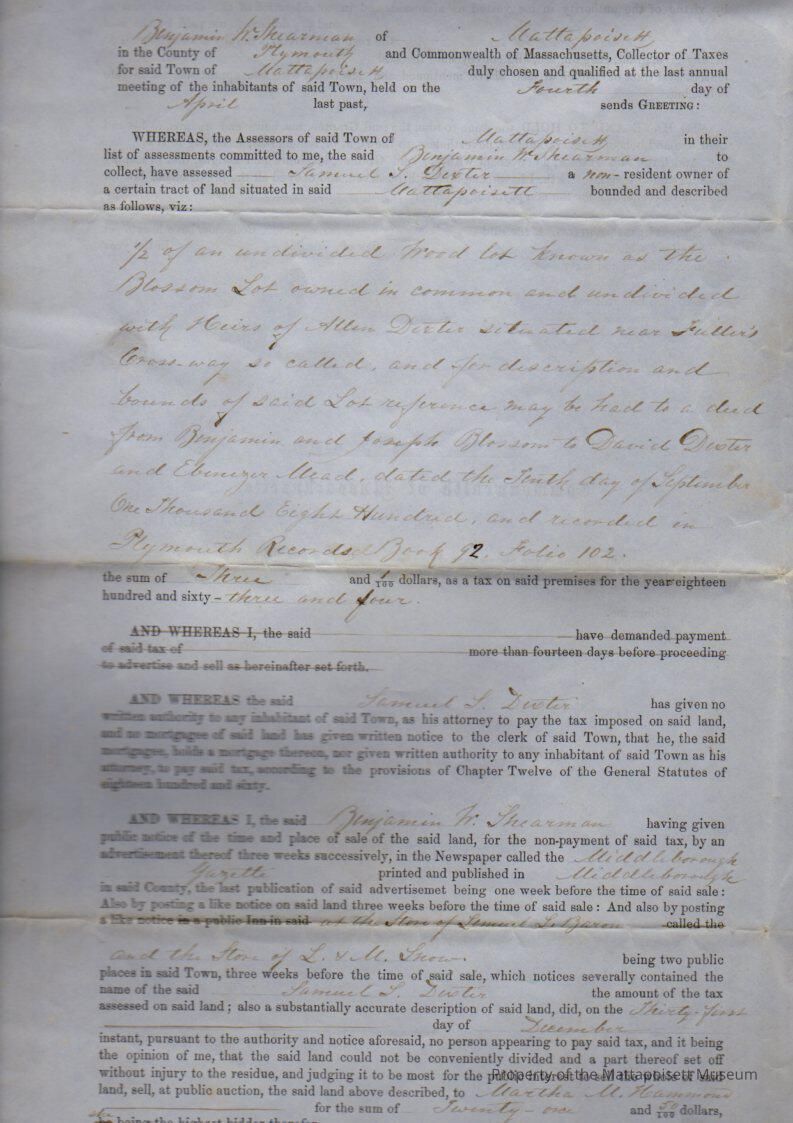 Benjamin W. Shearman of Mattapoisett
in the County of Plymouth and Commonwealth of Massachusetts, Collector of Taxes
for said Town of Mattapoisett duly chosen and qualified at the last annual
meeting of the inhabitants of said Town, held on the Fourth day of
April last past, sends GREETING:
WHEREAS, the Assessors of said Town of Mattapoisett in their
list of assessments committed to me, the said Benjamin W. Shearman to
collect, have assessed Samuel S. Dexter a non-resident owner of
a certain tract of land situated in said Mattapoisett bounded and described
as follows, viz:
1/2 of an undivided Wood lot known as the
Blossom Lot owned in common and undivided
with Heirs of Allen Dexter situated near Fuller's
Cross-way so called, and for description and
bounds of said Lot reference may be had to a deed
from Benjamin and Joseph Blossom to David Dexter
and Ebenezer Mead, dated the Tenth day of September
One Thousand Eight Hundred, and recorded in
Plymouth Records Book 92. Folio 102.
the sum of Three and /100 dollars, as a tax on said premises for the year eighteen
hundred and sixty-three and four.
AND WHEREAS I, the said have demanded payment
of said tax of more than fourteen days before proceeding
to advertise and sell as hereinafter set forth.
AND WHEREAS the said Samuel S. Dexter has given no
written authority to any inhabitant of said Town, as his attorney to pay the tax imposed on said land,
and no mortgagee of said land has given written notice to the clerk of said Town, that he, the said
mortgagee, holds a mortgage thereon, nor given written authority to any inhabitant of said Town as his
attorney, to pay said tax, according to the provisions of Chapter Twelve of the General Statutes of
eighteen hundred and sixty.
AND WHEREAS I, the said Benjamin W. Shearman having given
public notice of the time and place of sale of the said land, for the non-payment of said tax, by an
advertisement thereof three weeks successively, in the Newspaper called the Middleborough
Gazette printed and published in Middleborough
in said County, the last publication of said advertisemet being one week before the time of said sale:
Also by posting a like notice on said land three weeks before the time of said sale: And also by posting
a like notice in a public Inn in said at the Store of Samuel L. Baron called the
and the Store of L. & M. Snow. being two public
places in said Town, three weeks before the time of said sale, which notices severally contained the
name of the said Samuel S. Dexter the amount of the tax
assessed on said land; also a substantially accurate description of said land, did, on the Thirty-first
day of December
instant, pursuant to the authority and notice aforesaid, no person appearing to pay said tax, and it being
the opinion of me, that the said land could not be conveniently divided and a part thereof set off
without injury to the residue, and judging it to be most for the public interest to sell the whole of said
Property of the Mattapoisett Museum
land, sell, at public auction, the said land above described, to Martha M. Hammond
for the sum of Twenty-one and 50/100 dollars,
she being the highest bidder therefor.